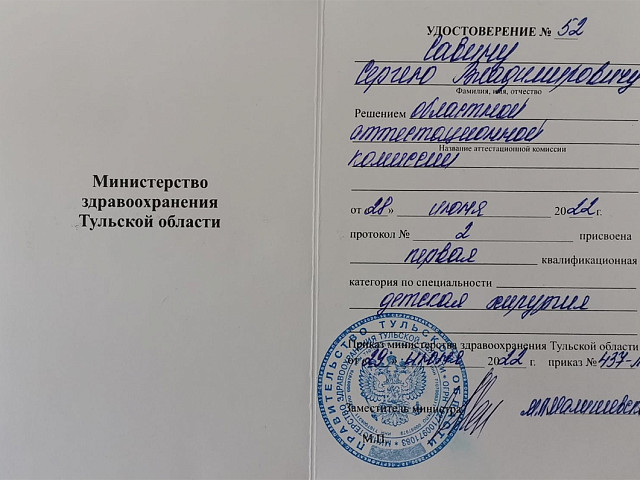 Министерство
здравоохранения
Тульской области
УДОСТОВЕРЕНИЕ № 52
Савину
Сергею Владимировичу
Фамилия, имя, отчество
Решением областной
аттестационной
Название аттестационной комиссии
комиссии
от «28» июня 2022 г.
протокол № 2 присвоена
первая квалификационная
категория по специальности
детская хирургия
Приказ министерства здравоохранения Тульской области
от 29 июня 2022 г. приказ № 437-
Заместитель министра
М.П.
ПРАВИТЕЛЬСТВО ТУЛЬСКОЙ ОБЛАСТИ
МИНИСТЕРСТВО ЗДРАВООХРАНЕНИЯ ТУЛЬСКОЙ ОБЛАСТИ